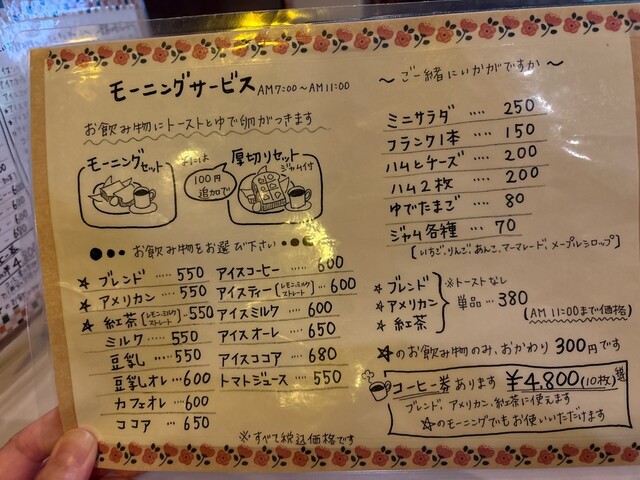 モーニングサービス AM7:00～AM11:00
お飲み物にトーストとゆで卵がつきます
モーニングセット
または
100円
追加で
厚切りセット
ジャム付
お飲み物をお選び下さい
☆ ブレンド ‥‥ 550
☆ アメリカン ‥‥ 550
☆ 紅茶 (レモン・ミルク ストレート) ‥ 550
ミルク ‥‥ 550
豆乳 ‥‥ 550
豆乳オレ ‥ 600
カフェオレ ‥ 600
ココア ‥ 650
アイスコーヒー ‥‥ 600
アイスティー (レモン・ミルク ストレート) ‥ 600
アイスミルク ‥‥ 600
アイスオーレ ‥‥ 650
アイスココア ‥‥ 680
トマトジュース ‥‥ 550
※すべて税込価格です
～ ご一緒にいかがですか ～
ミニサラダ ‥‥ 250
フランク1本 ‥‥ 150
ハムとチーズ ‥‥ 200
ハム2枚 ‥‥ 200
ゆでたまご ‥‥ 80
ジャム各種 ‥‥ 70
[いちご,りんご,あんこ,マーマレード,メープルシロップ]
☆ ブレンド
☆ アメリカン
☆ 紅茶
※トーストなし
単品 ‥ 380
(AM 11:00まで価格)
☆のお飲み物のみ、おかわり 300円です
コーヒー券あります ¥4,800(10枚)
ブレンド、アメリカン、紅茶に使えます
☆のモーニングでもお使いいただけます